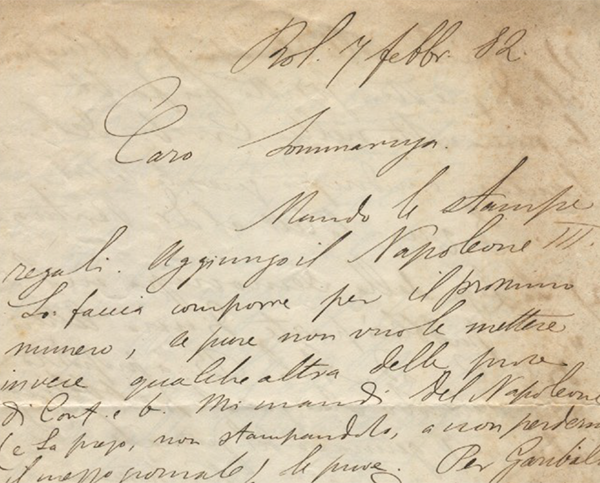 Bol. 7 febbr. 82.
Caro Sommaruga.
Mando le stampe
regali. Aggiungo il Napoleone III.
Lo faccia comporre per il prossimo
numero, se pure non vuole mettere
invece qualche altra delle prose
di Conf. e b. Mi mandi del Napoleone
(e La prego, non stampandolo, a non perdermi
il mezzo giornale) le prove. Per Garibal